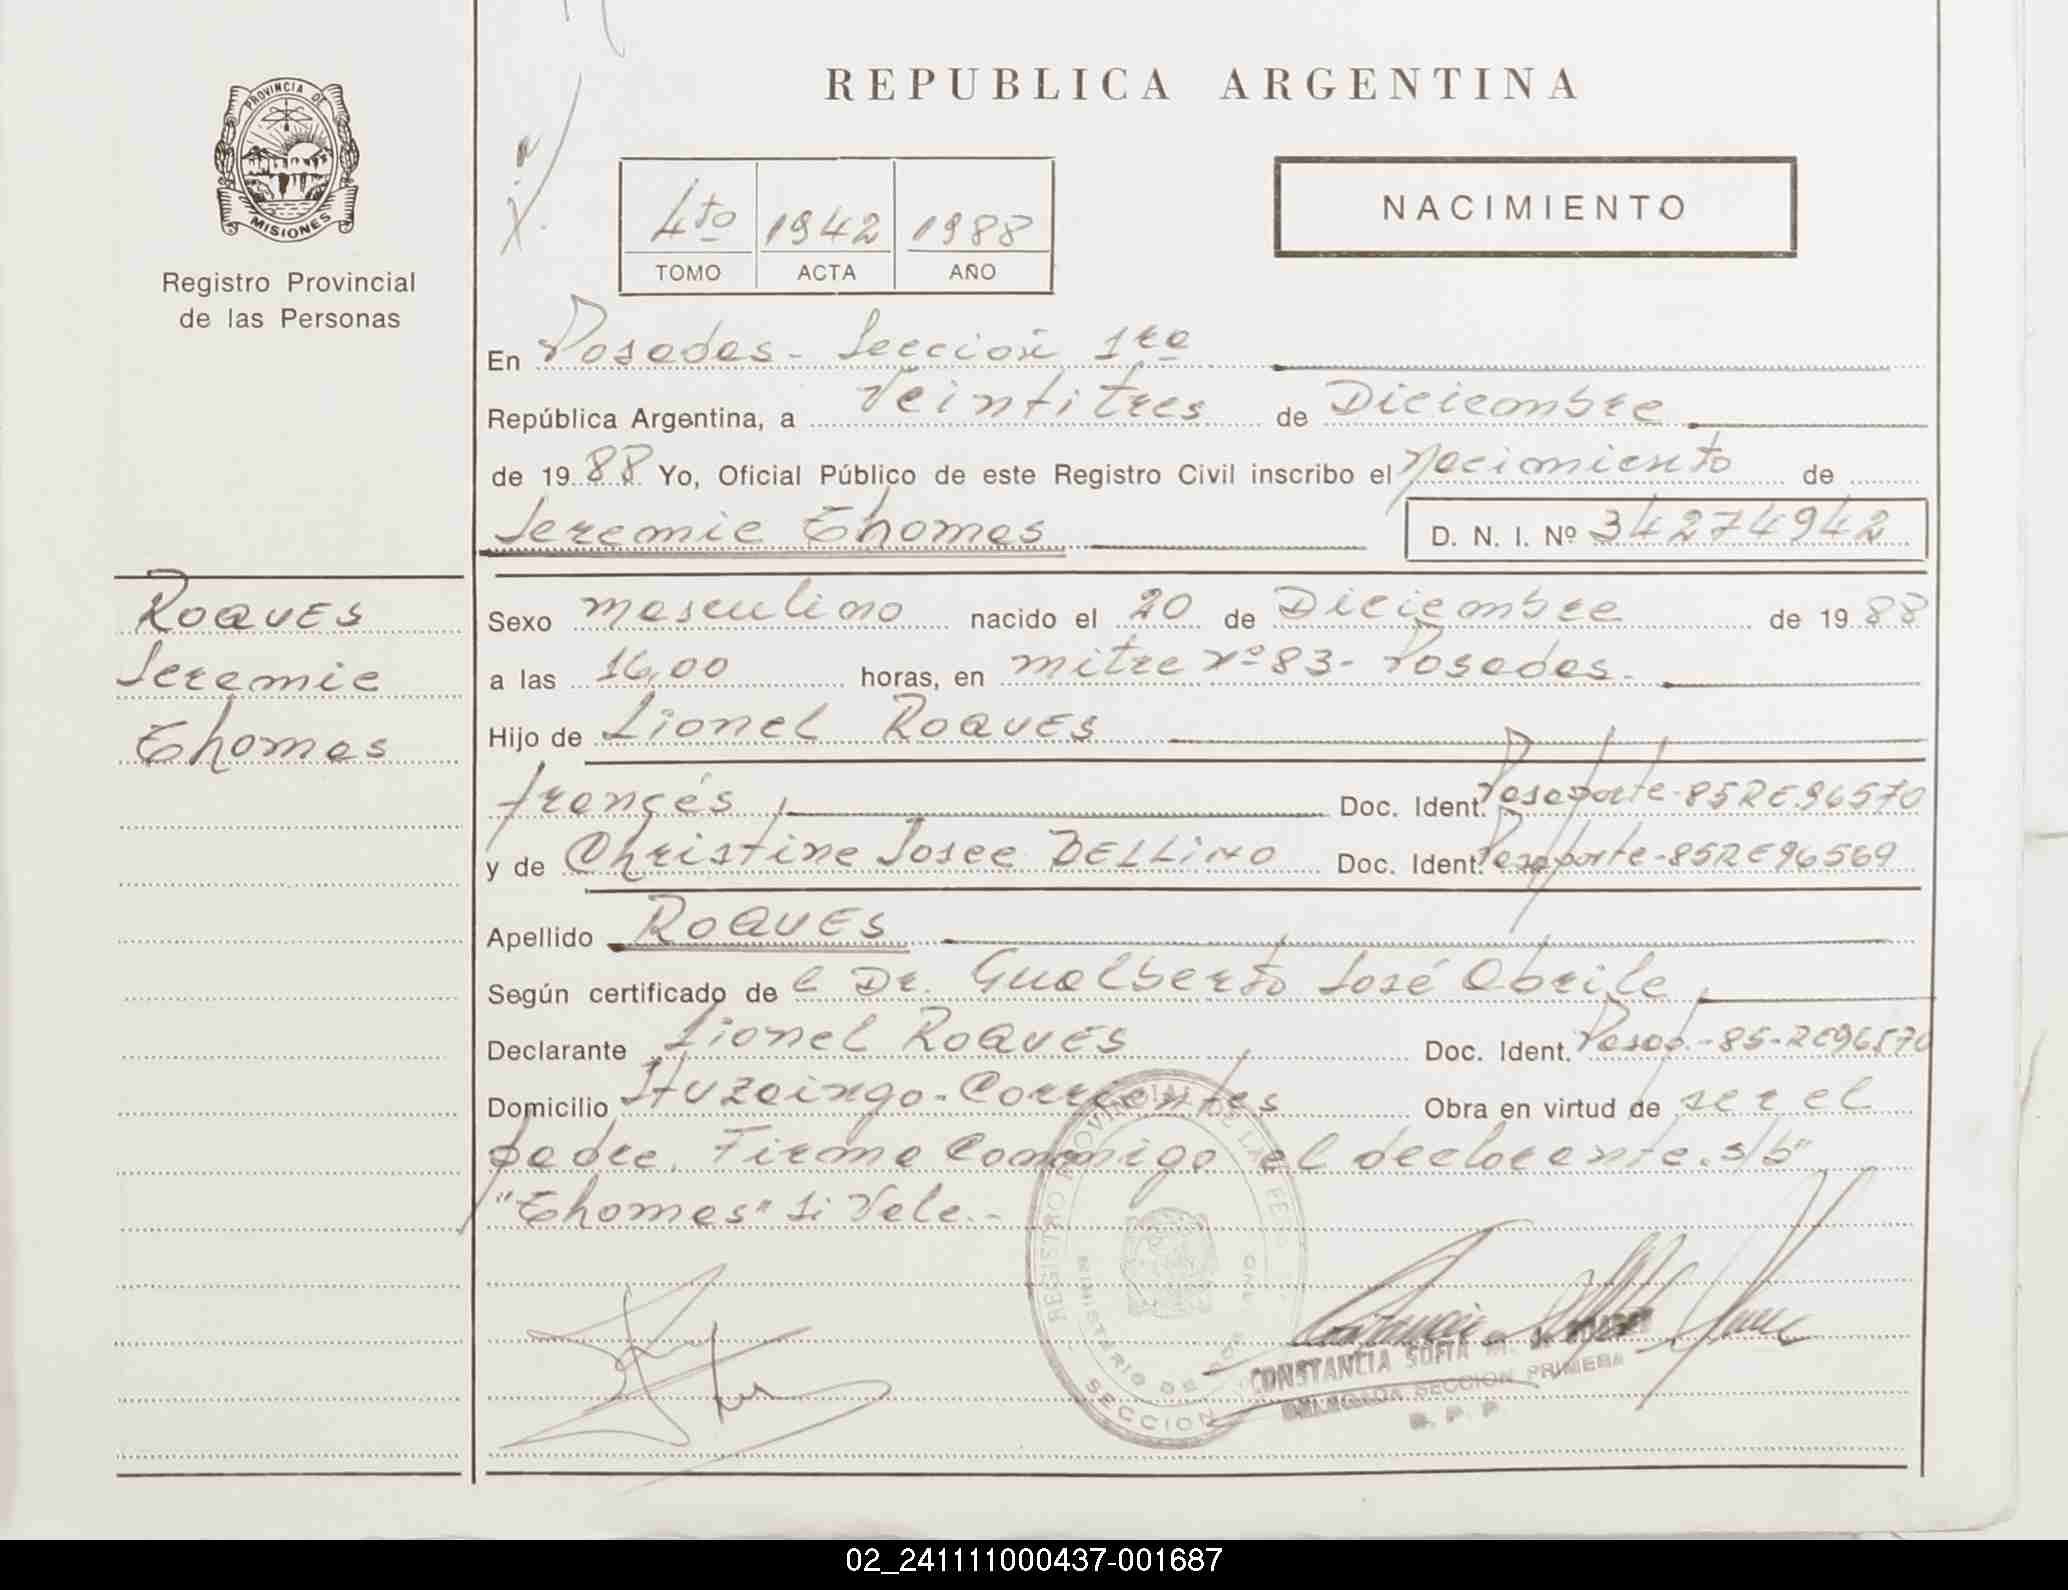 REPUBLICA ARGENTINA
PROVINCIA DE
MISIONES
Registro Provincial
de las Personas
4to 1942 1988
TOMO ACTA AÑO
NACIMIENTO
En Posadas - Sección 1ra
República Argentina, a Veintitres de Diciembre
de 1988 Yo, Oficial Público de este Registro Civil inscribo el nacimiento de
Jeremie Thomas D. N. I. Nº 34274942
ROQUES
Jeremie
Thomas
Sexo masculino nacido el 20 de Diciembre de 1988
a las 16,00 horas, en mitre nº 83 - Posadas.
Hijo de Lionel ROQUES
francés, Doc. Ident. Pasaporte-85RE96570
y de Christine Josee BELLINO Doc. Ident. Pasaporte-85RE96569
Apellido ROQUES
Según certificado de l Dr. Gualberto José Obrile,
Declarante Lionel ROQUES Doc. Ident. Pasap.-85-RE96570
Domicilio Ituzaingo - Corrientes Obra en virtud de ser el
padre. Firma conmigo el declarante. s/b"
"Thomas" si Vale.-
REGISTRO PROVINCIAL DE LAS PERS
MINISTERIO DE GOBIERNO
SECCION
CONSTANCIA SOFIA M.
DELEGADA SECCION PRIMERA
R. P. P.
02_241111000437-001687